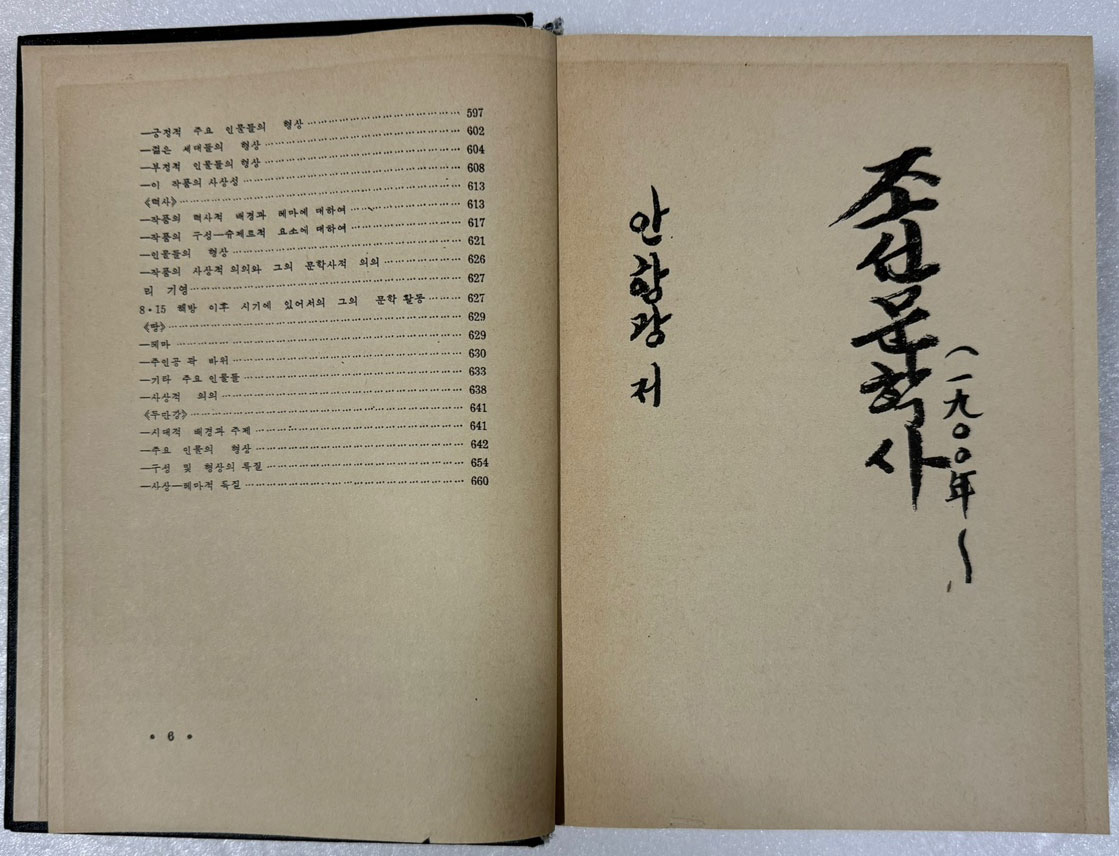 —긍정적 주요 인물들의 형상 …… 597
—젊은 세대들의 형상 …… 602
—부정적 인물들의 형상 …… 604
—이 작품의 사상성 …… 608
《력사》 …… 613
—작품의 력사적 배경과 테마에 대하여 …… 613
—작품의 구성—슈제트적 요소에 대하여 …… 617
—인물들의 형상 …… 621
—작품의 사상적 의의와 그의 문학사적 의의 …… 626
리 기영 …… 627
8·15 해방 이후 시기에 있어서의 그의 문학 활동 …… 627
《땅》 …… 629
—테마 …… 629
—주인공 곽 바위 …… 630
—기타 주요 인물들 …… 633
—사상적 의의 …… 638
《두만강》 …… 641
—시대적 배경과 주제 …… 641
—주요 인물의 형상 …… 642
—구성 및 형상의 특질 …… 654
—사상—테마적 특질 …… 660
• 6 •
조선문학사
(一九〇〇年~
안함광 저